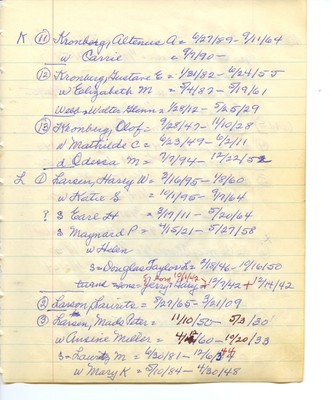 K (11) Kronberg, Altenus A = 6/27/89 - 9/11/64
w Carrie = 9/9/90 -
(12) Kronberg, Gustave E = 1/21/82 - 6/24/55
w Elizabeth M = 5/4/89 - 5/19/61
Webb, Walter Glenn = 1/28/12 - 5/25/29
(13) Kronberg, Olof = 9/28/47 - 11/10/28
w Mathilde C = 6/23/49 - 6/2/11
d Odessa M = 7/7/94 - 12/22/52
L (1) Larsen, Harry W = 3/16/95 - 1/8/60
w Katie S = 10/1/95 - 9/7/64
? S Earl H = 3/19/11 - 5/20/64
S Maynard P = 4/15/21 - 5/27/58
w Helen
S = Douglas Taylor L = 2/18/46 - 12/16/50
Jerry + 12/14/42
(2) Larson, Laurits = 8/29/65 - 3/21/09
(3) Larsen, Mads Peter = 11/10/50 - 5/3/30
w Ansine Miller = /60 - 10/20/33
S - M = 6/30/81 -
w Mary K = 5/10/84 - 4/30/48